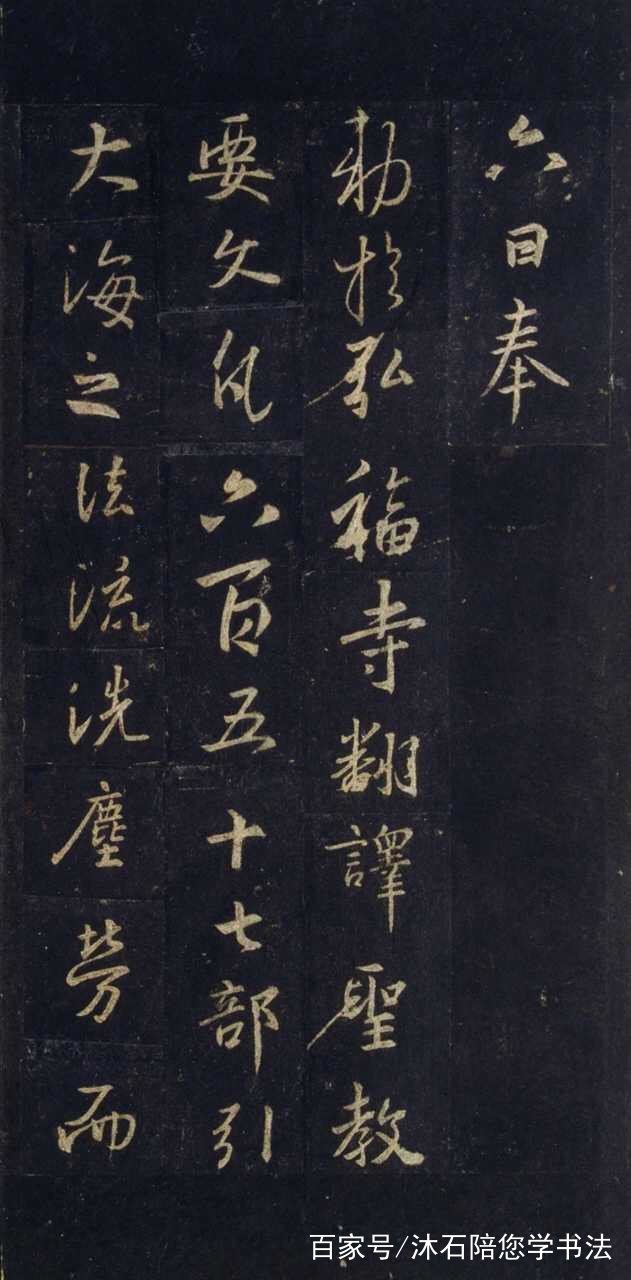 六日奉
勅於弘福寺翻譯聖教
要文凡六百五十七部引
大海之法流洗塵勞而
百家号/沐石陪您学书法